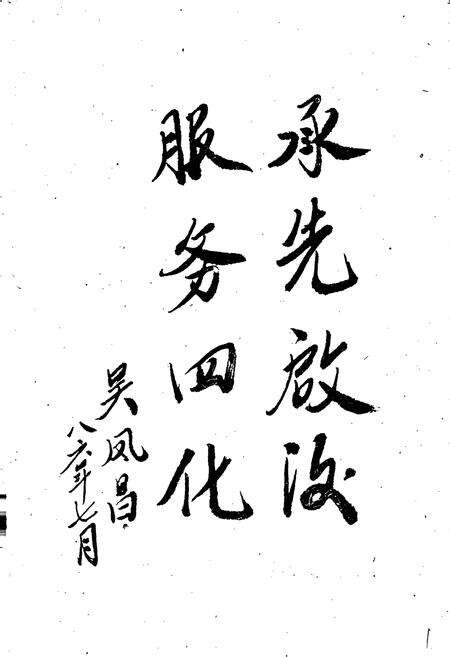 承先啟後
服务四化
吴凤昌
八六年七月